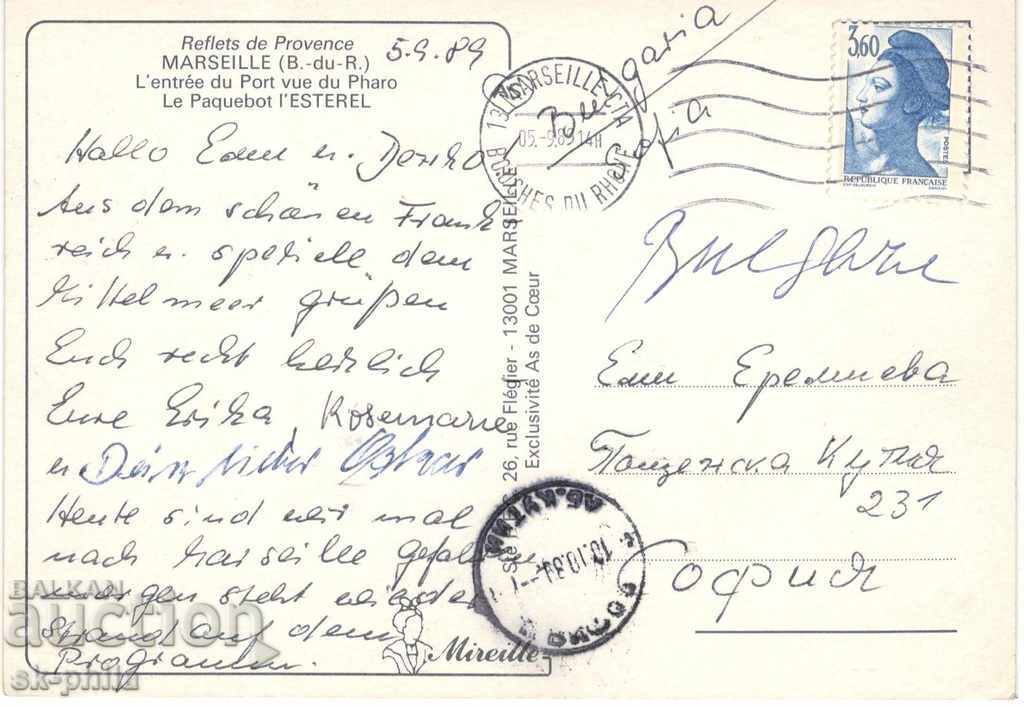 Reflets de Provence
MARSEILLE (B.-du-R.)
L'entrée du Port vue du Pharo
Le Paquebot l'ESTEREL
5.9.89
Hallo Emu u.
Aus dem schönen Frank
reich u. speziell dem
Mittelmeer grüßen
Euch recht herzlich
Eure Erika, Rosemarie
u Dein lieber Oskar
Heute sind wir mal
nach Marseille gefahren
morgen steht wieder
Strand auf dem
Programm.
Mireille
26, rue Flégier - 13001 MARSEILLE
Exclusivité As de Cœur
13 MARSEILLE CTA
05.-9.89 14H
BOUCHES DU RHONE
Bulgaria
Sofia
3,60
POSTES
RÉPUBLIQUE FRANÇAISE
Bulgarie
Еми Еремиева
Пощенска Кутия
231
София
АБ. КУТИИ
10.10.89
BALKAN
auction
sk-phila